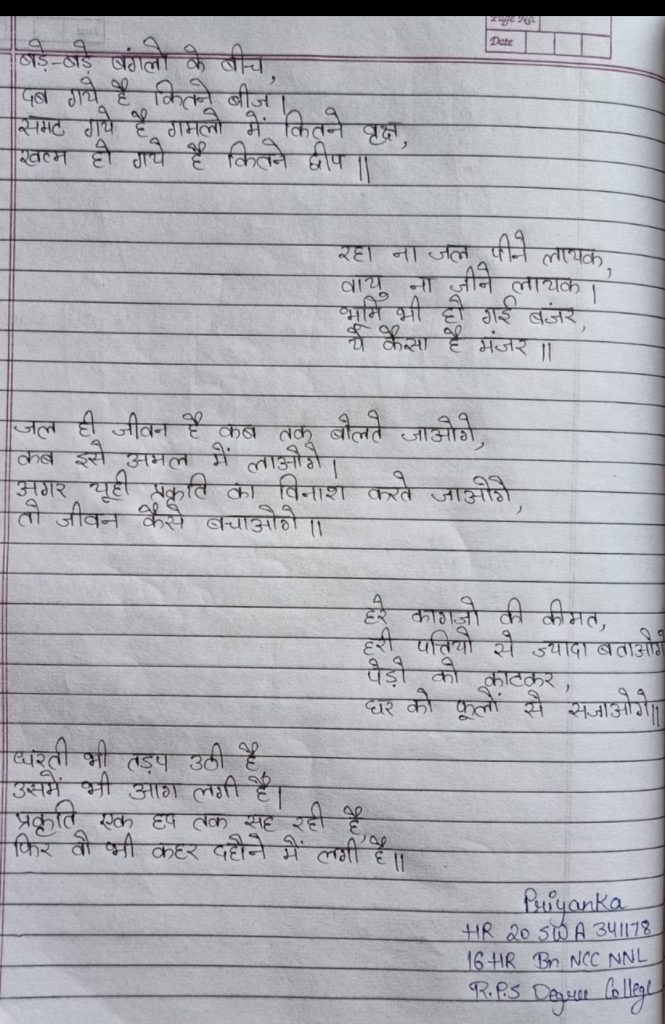 Page No.
Date
बड़े-बड़े बंगलो के बीच,
दब गये है कितने बीज।
समट गये है गमलो में कितने वृक्ष,
खत्म हो गये है कितने द्वीप॥
रहा ना जल पीने लायक,
वायु ना जीने लायक।
भूमि भी हो गई बंजर,
ये कैसा है मंजर॥
जल ही जीवन है कब तक बोलते जाओगे,
कब इसे अमल में लाओगे।
अगर यूही प्रकृति का विनाश करते जाओगे,
तो जीवन कैसे बचाओगे॥
हरे कागजो की कीमत,
हरी पतियो से ज्यादा बताओगे
पेड़ो को काटकर,
घर को फूलों से सजाओगे॥
धरती भी तड़प उठी है,
उसमें भी आग लगी है।
प्रकृति एक हद तक सह रही है,
फिर वो भी कहर ढहाने में लगी है॥
Priyanka
HR 20 SWA 341178
16 HR Bn NCC NNL
R.P.S Degree College